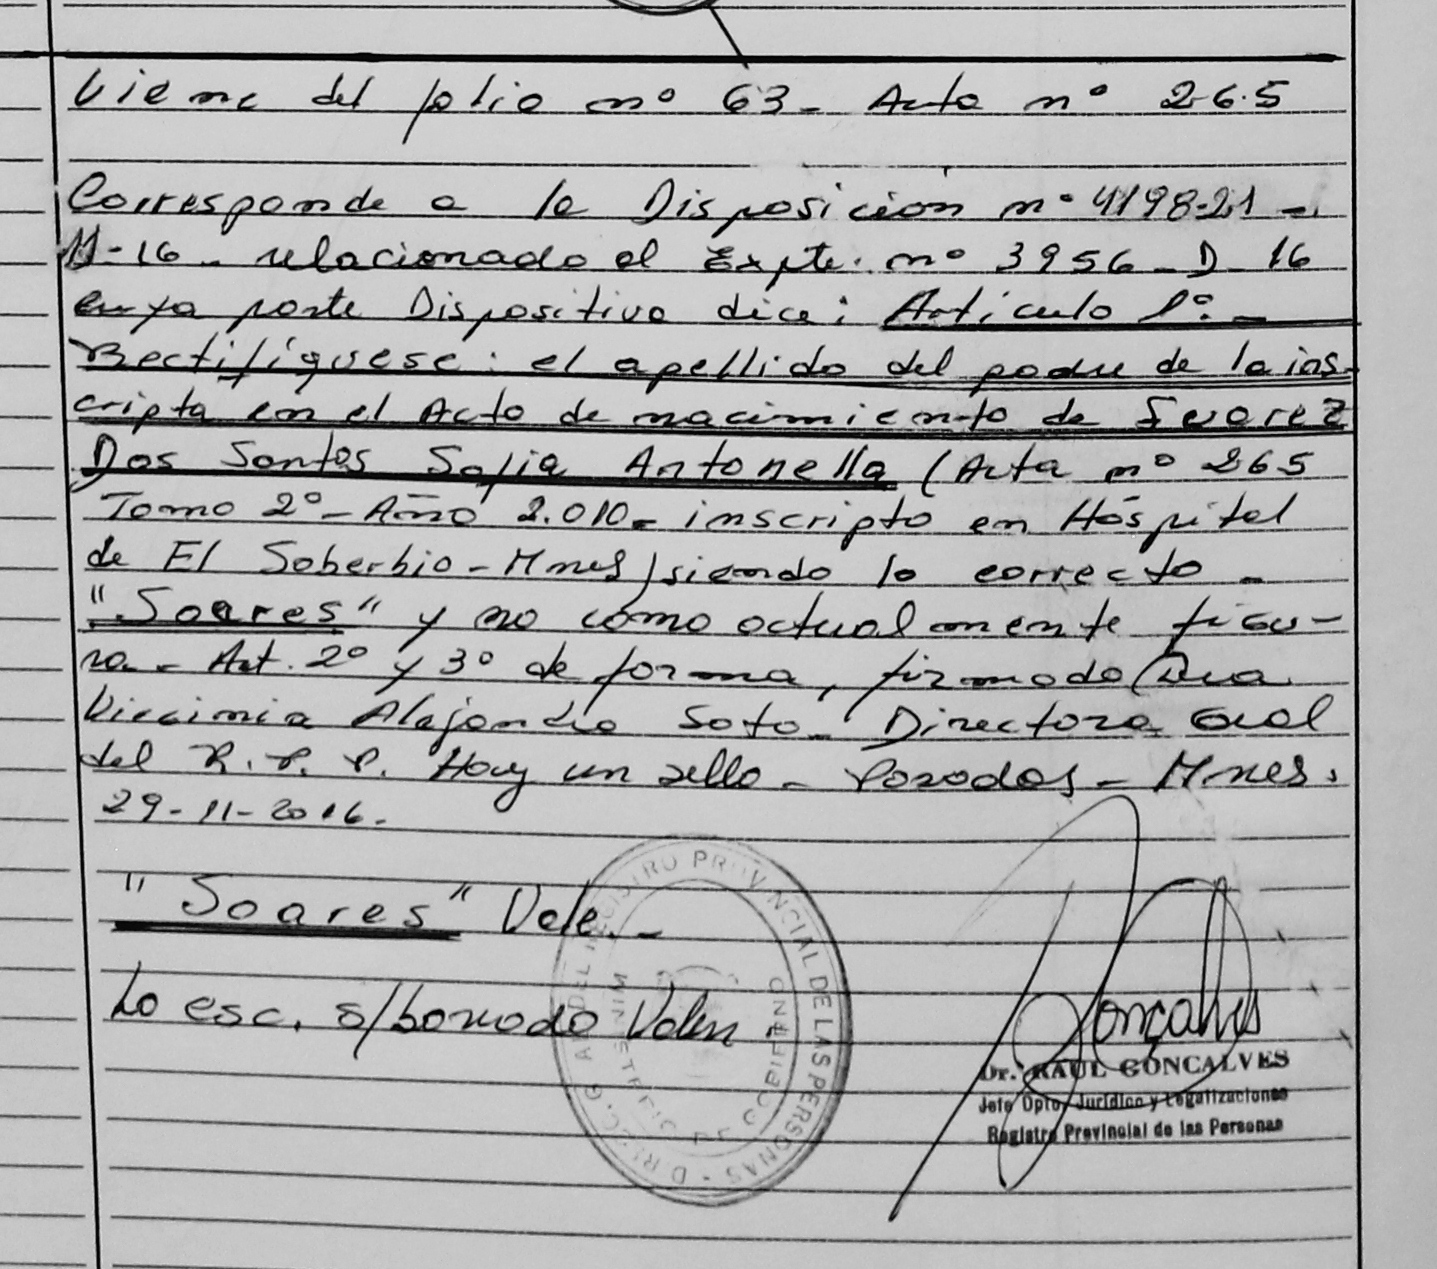 Viene del folio nº 63 - Acta nº 265
Corresponde a la Disposición nº 4198-21 -
11-16 - relacionado al Expte. nº 3956 - D - 16
cuya parte Dispositiva dice: Artículo 1º. -
Rectifíquese: el apellido del padre de la ins-
cripta en el Acta de nacimiento de Suarez
Dos Santos Sofia Antonella (Acta nº 265
Tomo 2º - Año 2.010 - inscripto en Hospital
de El Soberbio - Mnes) siendo lo correcto -
"Soares" y no como actualmente figu-
ra - Art. 2º y 3º de forma, firmado
Virginia Alejandra Soto - Directora Gral
del R. P. P. Hay un sello - Posadas - Mnes.
29-11-2016.
"Soares" Vale. -
Lo esc. s/borrado Valen
DIRECC. GRAL. DEL REGISTRO PROVINCIAL DE LAS PERSONAS
MINISTERIO DE GOBIERNO
Goncalves
Dr. RAUL GONCALVES
Jefe Dpto. Jurídico y Legalizaciones
Registro Provincial de las Personas